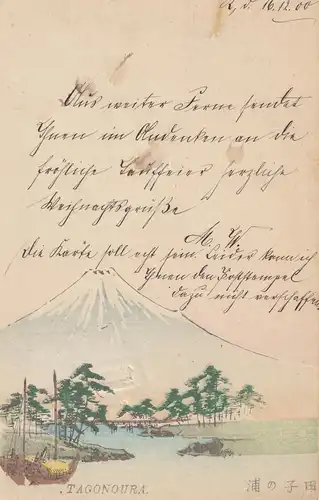 d. 16.12.00
Aus weiter Ferne sendet
Ihnen im Andenken an die
fröhliche Tauffeier herzliche
Weihnachtsgrüße
M. W.
Die Karte soll echt sein. Leider kann ich
Ihnen den Poststempel
dazu nicht verschaffen.
TAGONOURA.
田子の浦